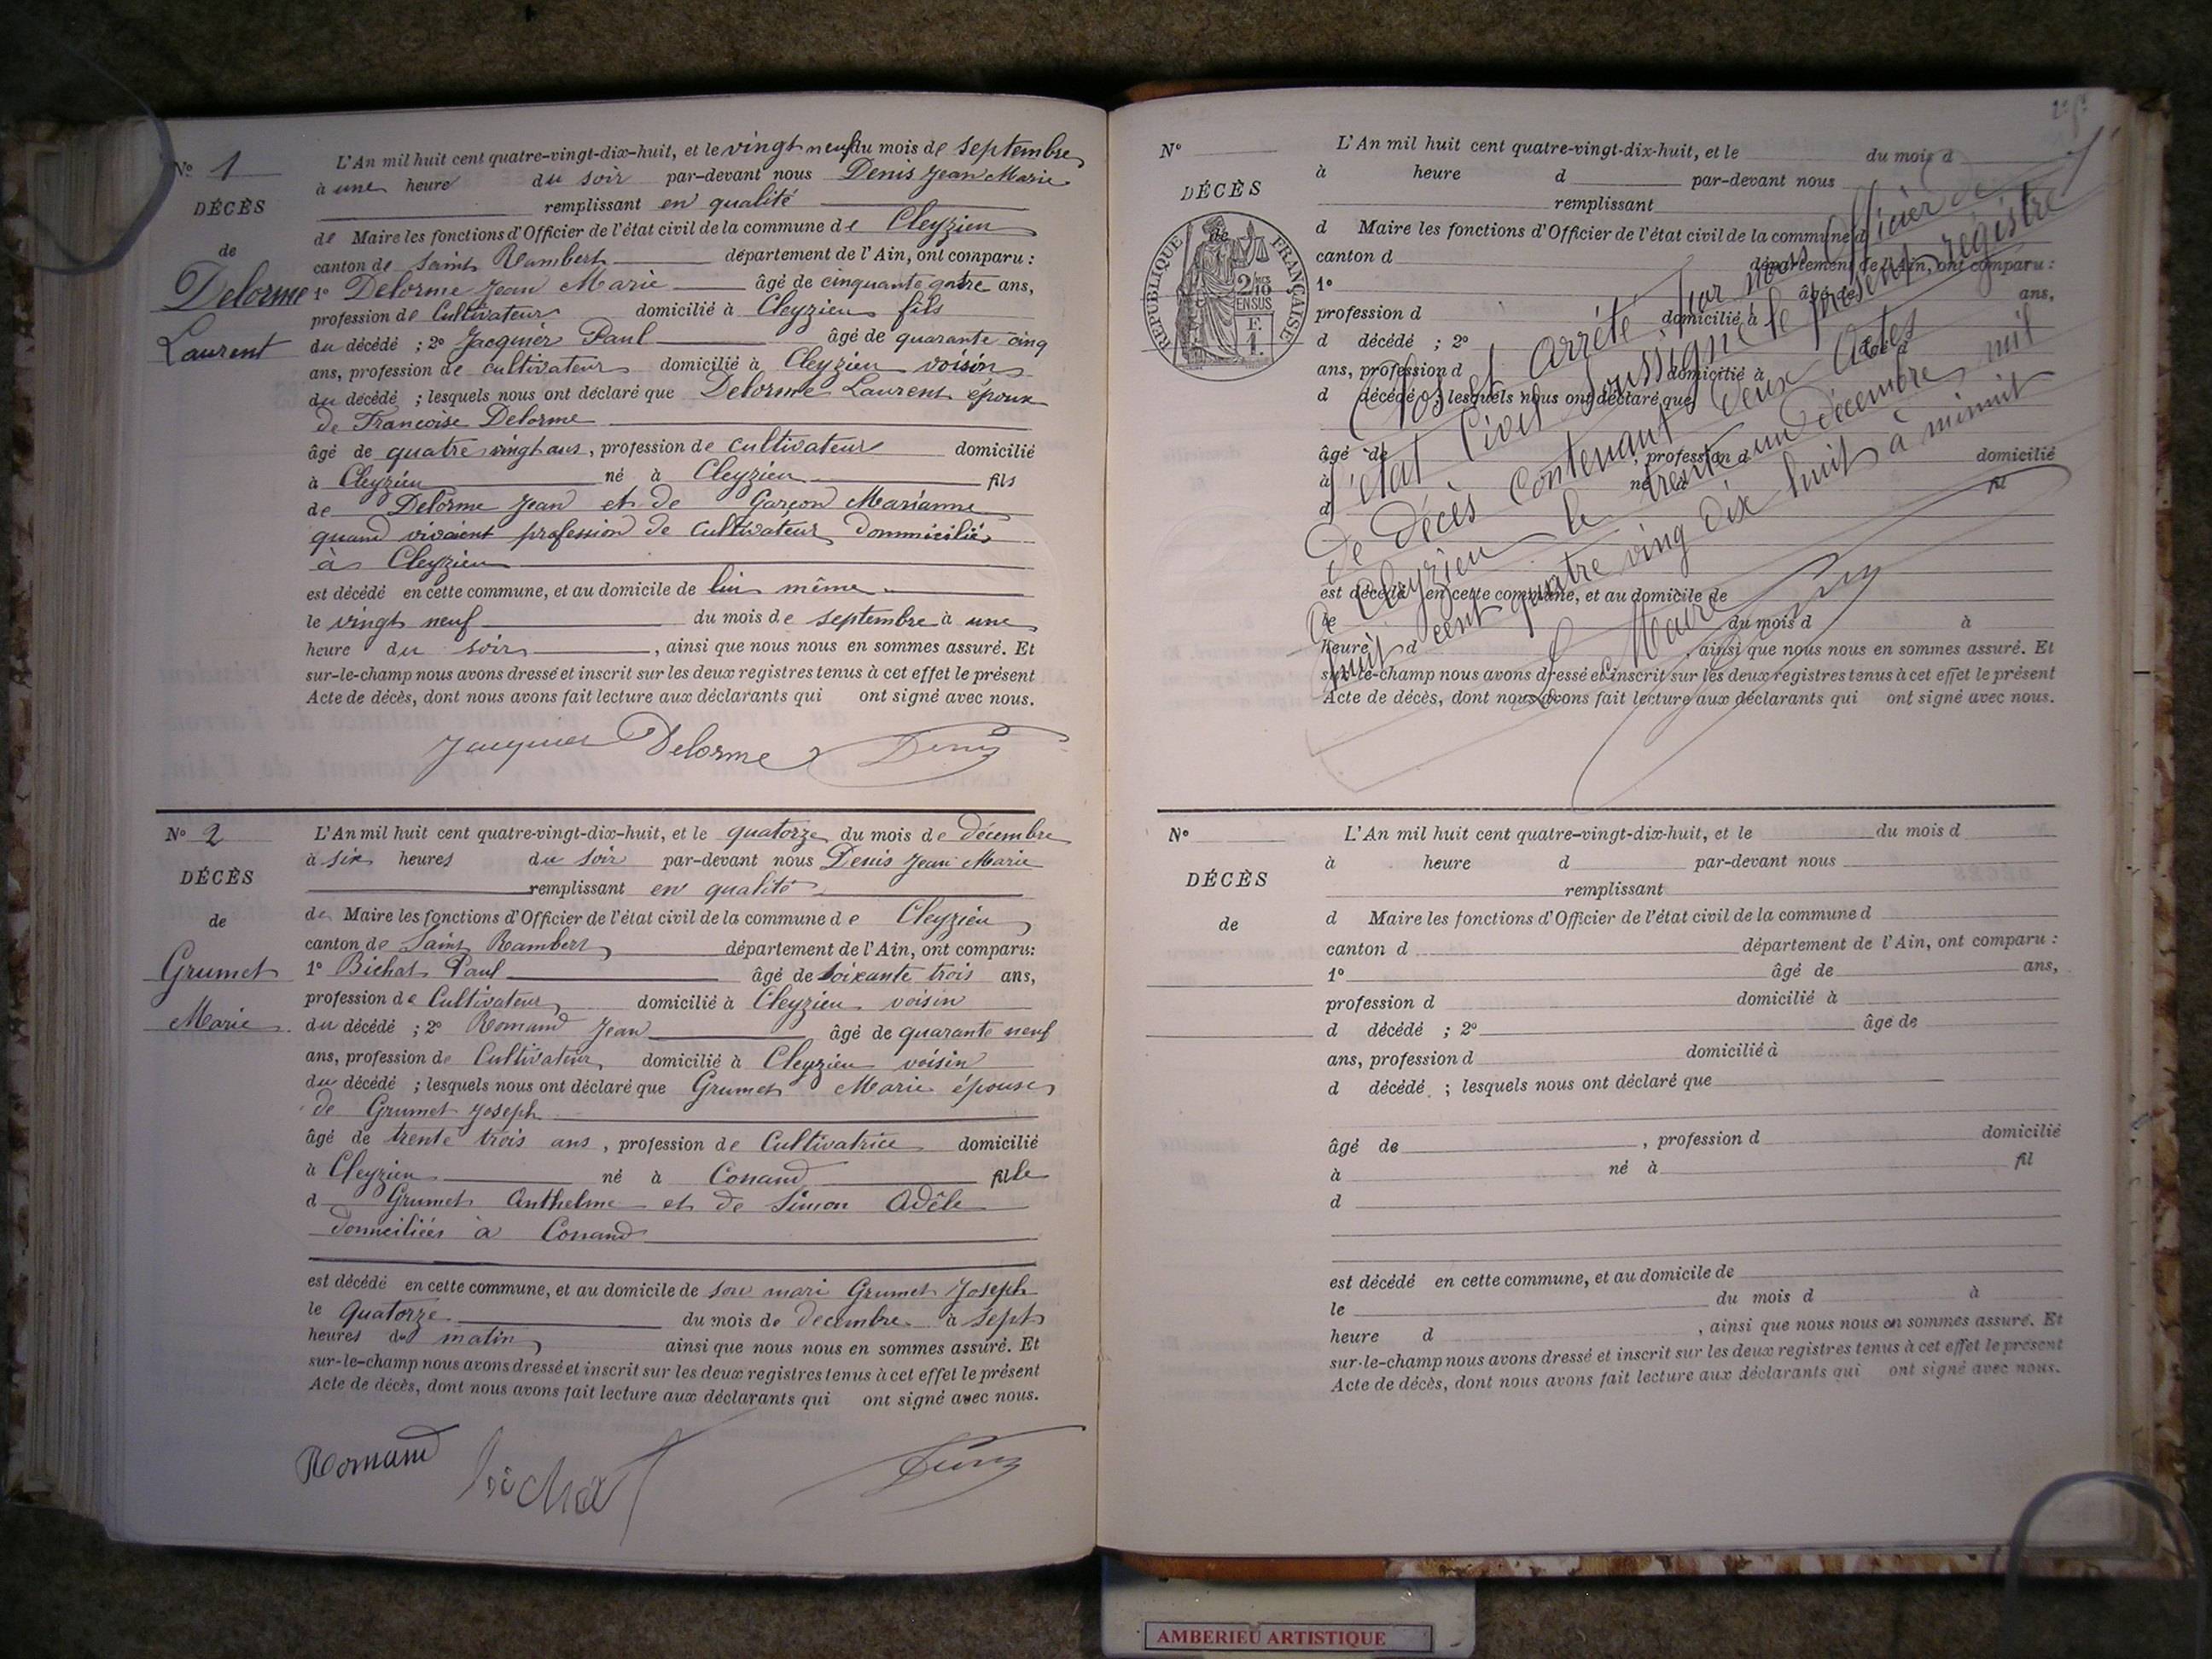 Nº 1
DÉCÈS
de
Delorme
Laurent
L'An mil huit cent quatre-vingt-dix-huit, et le vingt neuf du mois de septembre
à une heure du soir par-devant nous Denis Jean Marie
remplissant en qualité
de Maire les fonctions d'Officier de l'état civil de la commune de Cleyzieu
canton de Saint Rambert département de l'Ain, ont comparu :
1º Delorme Jean Marie âgé de cinquante qatre ans,
profession de Cultivateur domicilié à Cleyzieu fils
du décédé ; 2º Jacquier Paul âgé de quarante cinq
ans, profession de cultivateur domicilié à Cleyzieu voisin
du décédé ; lesquels nous ont déclaré que Delorme Laurent époux
de Francoise Delorme
âgé de quatre vingt ans, profession de cultivateur domicilié
à Cleyzieu né à Cleyzieu fils
de Delorme Jean et de Garçon Marianne
quand vivaient profession de cultivateur dommiciliés
à Cleyzieu
est décédé en cette commune, et au domicile de lui même
le vingt neuf du mois de septembre à une
heure du soir, ainsi que nous nous en sommes assuré. Et
sur-le-champ nous avons dressé et inscrit sur les deux registres tenus à cet effet le présent
Acte de décès, dont nous avons fait lecture aux déclarants qui ont signé avec nous.
Jacquier Delorme Denis
Nº 2
DÉCÈS
de
Grumet
Marie
L'An mil huit cent quatre-vingt-dix-huit, et le quatorze du mois de décembre
à six heures du soir par-devant nous Denis Jean Marie
remplissant en qualité
de Maire les fonctions d'Officier de l'état civil de la commune de Cleyzieu
canton de Saint Rambert département de l'Ain, ont comparu:
1º Bichat Paul âgé de soixante trois ans,
profession de Cultivateur domicilié à Cleyzieu voisin
du décédé ; 2º Romand Jean âgé de quarante neuf
ans, profession de Cultivateur domicilié à Cleyzieu voisin
du décédé ; lesquels nous ont déclaré que Grumet Marie épouse
de Grumet Joseph
âgé de trente trois ans, profession de Cultivatrice domicilié
à Cleyzieu né à Conand fille
d Grumet Anthelme et de Simon Adêle
domiciliés à Conand
est décédé en cette commune, et au domicile de son mari Grumet Joseph
le quatorze du mois de decembre à sept
heures du matin ainsi que nous nous en sommes assuré. Et
sur-le-champ nous avons dressé et inscrit sur les deux registres tenus à cet effet le présent
Acte de décès, dont nous avons fait lecture aux déclarants qui ont signé avec nous.
Romand Bichat Denis
Nº
DÉCÈS
de
RÉPUBLIQUE FRANÇAISE
2/10
EN SUS
L'An mil huit cent quatre-vingt-dix-huit, et le du mois d
à heure d par-devant nous
remplissant
d Maire les fonctions d'Officier de l'état civil de la commune d
canton d département de l'Ain, ont comparu :
1º âgé de ans,
profession d domicilié à
d décédé ; 2º âgé d
ans, profession d domicilié à
d décédé ; lesquels nous ont déclaré que
âgé de , profession d domicilié
à né à fil
d
est décédé en cette commune, et au domicile de
le du mois d à
heure d , ainsi que nous nous en sommes assuré. Et
sur-le-champ nous avons dressé et inscrit sur les deux registres tenus à cet effet le présent
Acte de décès, dont nous avons fait lecture aux déclarants qui ont signé avec nous.
Clos et arrêté par nous Officier de
l'état Civil soussigné le présent régistre
de décès contenant deux actes
à Cleyzieu le trente un décembre mil
huit cent quatre ving dix huit à minuit
Le Maire
Denis
Nº
DÉCÈS
de
L'An mil huit cent quatre-vingt-dix-huit, et le du mois d
à heure d par-devant nous
remplissant
d Maire les fonctions d'Officier de l'état civil de la commune d
canton d département de l'Ain, ont comparu :
1º âgé de ans,
profession d domicilié à
d décédé ; 2º âge de
ans, profession d domicilié à
d décédé ; lesquels nous ont déclaré que
âgé de , profession d domicilié
à né à fil
d
est décédé en cette commune, et au domicile de
le du mois d à
heure d , ainsi que nous nous en sommes assuré. Et
sur-le-champ nous avons dressé et inscrit sur les deux registres tenus à cet effet le présent
Acte de décès, dont nous avons fait lecture aux déclarants qui ont signé avec nous.
AMBERIEU ARTISTIQUE